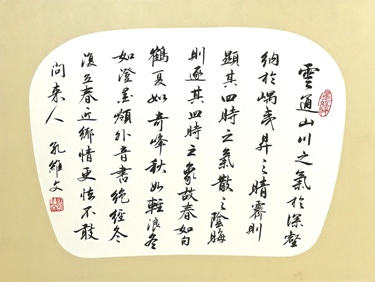 雲通山川之氣於深壑
納於嵎夷昇之晴霽則
顯其四時之氣散之陰晦
則逐其四時之象故春如白
鶴夏如奇峰秋如輕浪冬
如澄墨嶺外音書絕經冬
復立春近鄉情更怯不敢
問来人 孔維文